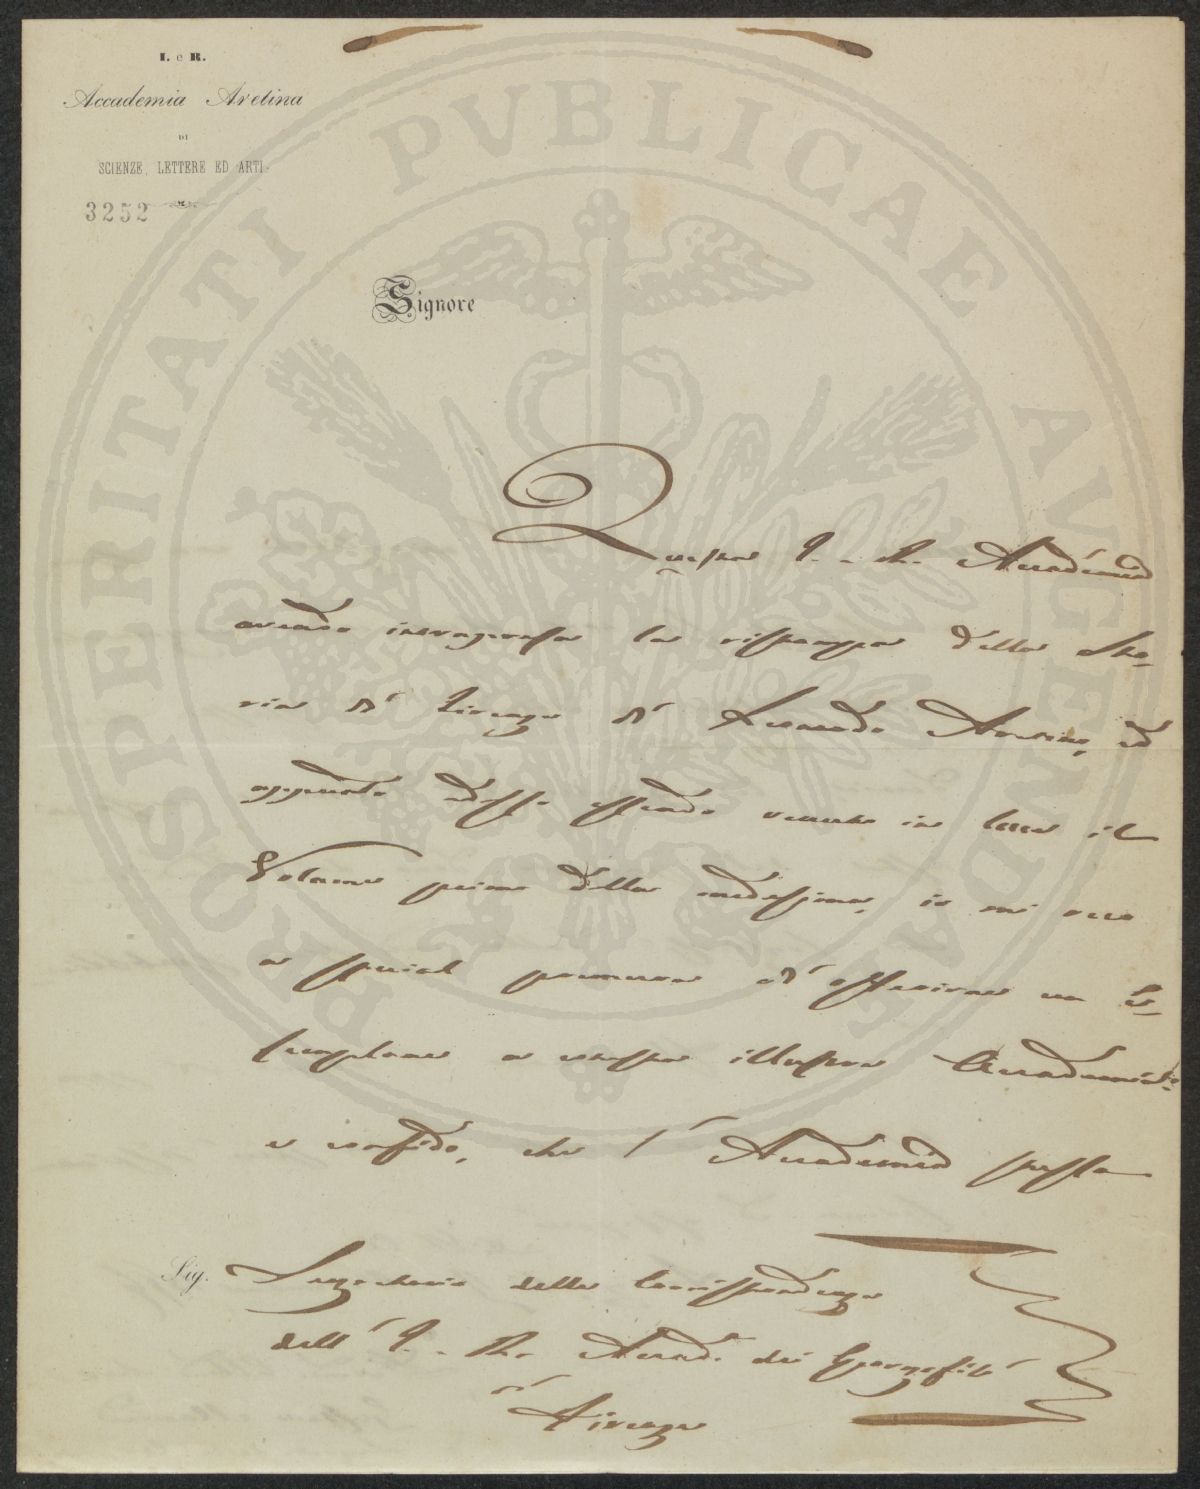 I. e R.
Accademia Aretina
DI
SCIENZE, LETTERE ED ARTI.
3252
Signore
Questa I. e R. Accademia
avendo intrapresa la ristampa della Sto-
ria di Firenze di Leonardo Aretino, ed
appunto adesso essendo venuto in luce il
Volume primo della medesima, io mi reco
a special premura d'offerirne un E-
semplare a cotesta illustre Accademia;
e confido, che l'Accademia stessa
Sig. Segretario della Corrispondenza
dell' I. e R. Accad. dei Georgofili
di
Firenze
PROSPERITATI PVBLICAE AVGENDAE